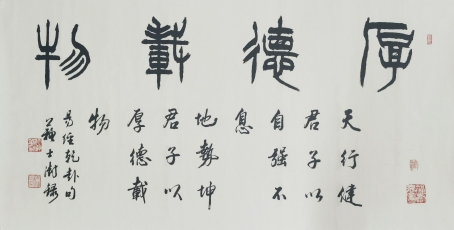 厚德載物
天行健
君子以
自強不
息
地勢坤
君子以
厚德載
物
易經乾卦句
蘇士澍錄